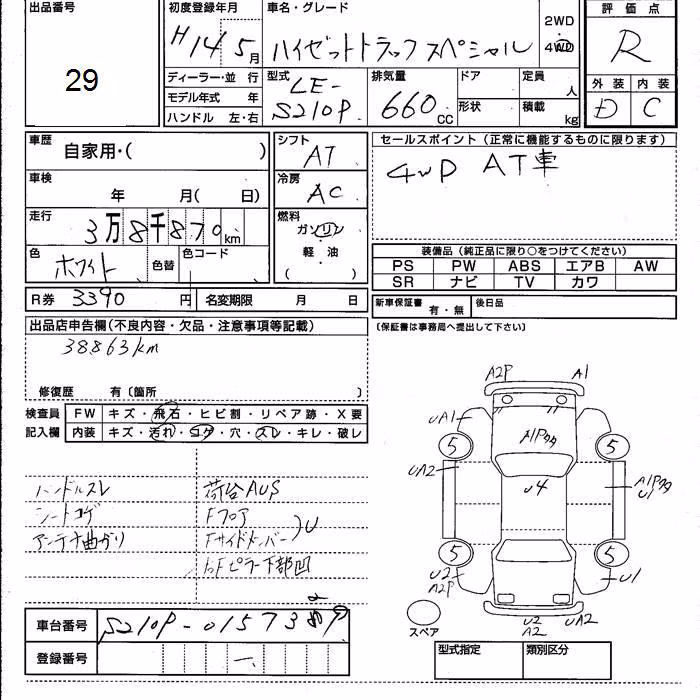 出品番号
29
初度登録年月
H14 5月
車名・グレード
ハイゼットトラック スペシャル
2WD
4WD
評価点
R
ディーラー・並 行
モデル年式 年
ハンドル 左・右
型式
LE-
S210P
排気量
660 CC
ドア
形状
定員
人
積載
kg
外装 内装
D C
車歴
自家用・( )
シフト
AT
セールスポイント(正常に機能するものに限ります)
4WD AT車
車検
年 月( 日)
冷房
AC
走行
3万8千870km
燃料
ガソリン
軽油
( )
色
ホワイト
色替
色コード
装備品(純正品に限り○をつけてください)
PS PW ABS エアB AW
SR ナビ TV カワ
R券 3390 円
名変期限 月 日
新車保証書 有・無
後日品
(保証書は事務局へ提出して下さい)
出品店申告欄(不良内容・欠品・注意事項等記載)
38863km
修復歴 有〔箇所 〕
検査員
記入欄
FW キズ・飛石・ヒビ割・リペア跡・X要
内装 キズ・汚れ・コゲ・穴・スレ・キレ・破レ
ハンドルスレ
シートコゲ
アンテナ曲がり
荷台AUS
Fフロア
Fサイドメンバー
U
Fピラー下部凹
A2P A1
UA1
5 5
A1Pタタ
UA2
U4
A1Pタタ
U1
5 5
U2
A2P
U1
U2
A2
UA2
スペア
車台番号 S210P-0157389
2
登録番号 —
型式指定 類別区分